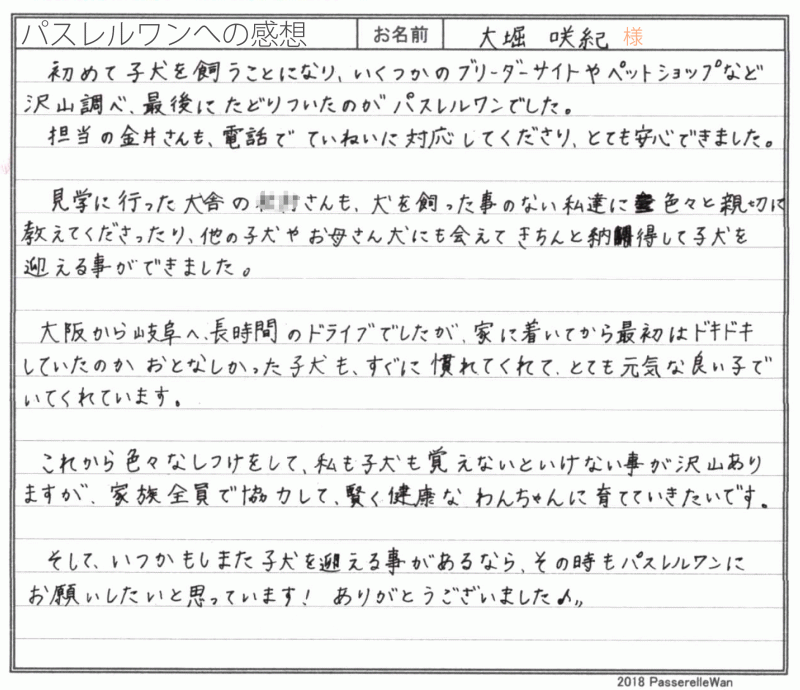 パスレルワンへの感想 お名前 大堀 咲紀 様
初めて子犬を飼うことになり、いくつかのブリーダーサイトやペットショップなど
沢山調べ、最後にたどりついたのがパスレルワンでした。
担当の金井さんも、電話でていねいに対応してくださり、とても安心できました。
見学に行った犬舎のさんも、犬を飼った事のない私達に色々と親切に
教えてくださったり、他の子犬やお母さん犬にも会えてきちんと納得して子犬を
迎える事ができました。
大阪から岐阜へ、長時間のドライブでしたが、家に着いてから最初はドキドキ
していたのかおとなしかった子犬も、すぐに慣れてくれて、とても元気な良い子で
いてくれています。
これから色々なしつけをして、私も子犬も覚えないといけない事が沢山あり
ますが、家族全員で協力して、賢く健康なわんちゃんに育てていきたいです。
そして、いつかもしまた子犬を迎える事があるなら、その時もパスレルワンに
お願いしたいと思っています! ありがとうございました♪〃
2018 PasserelleWan